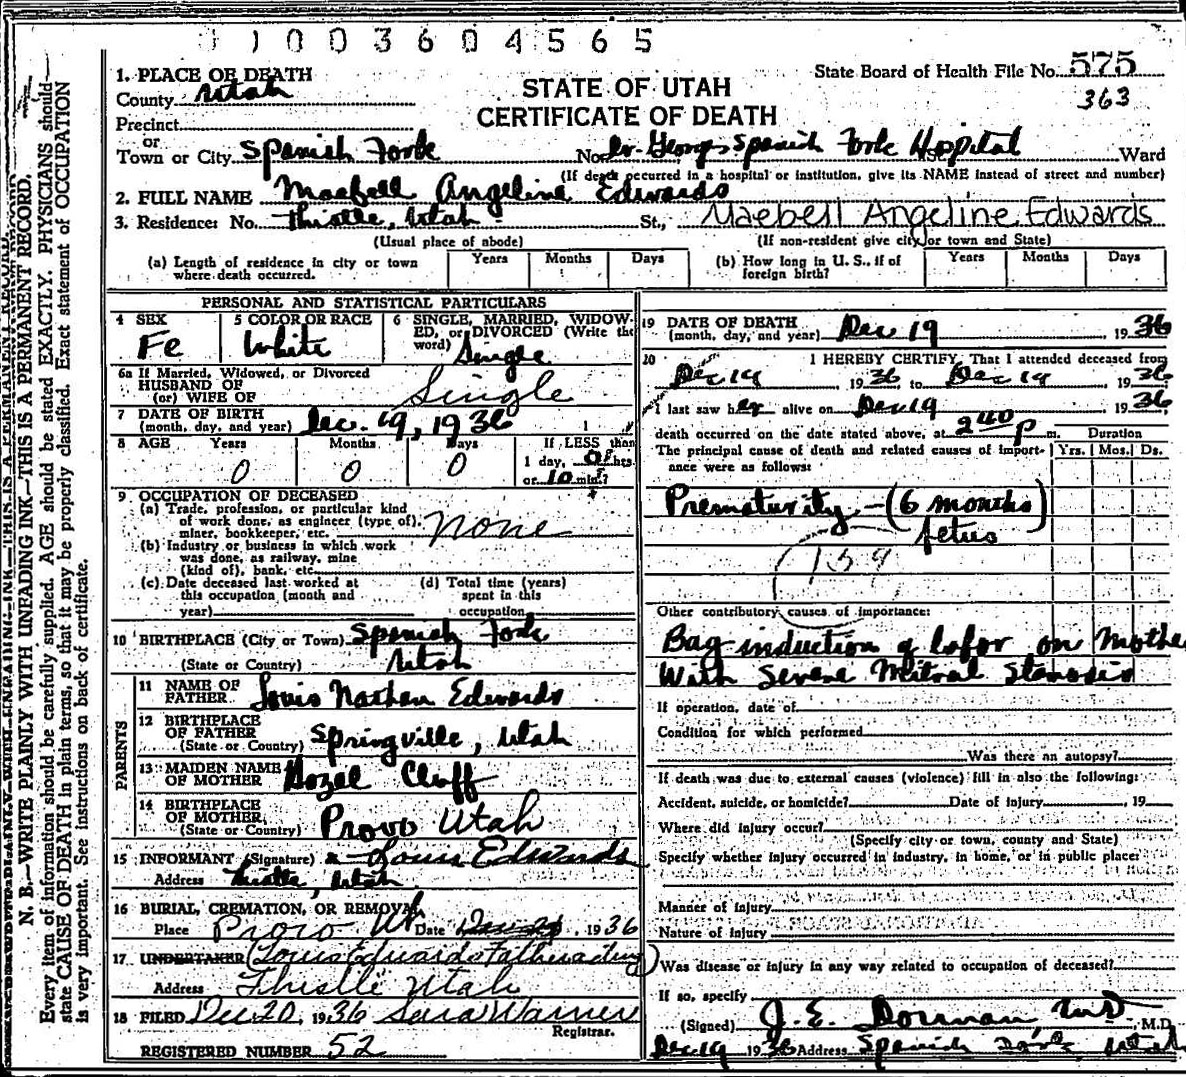 1 1 0 0 3 6 0 4 5 6 5
1. PLACE OF DEATH
County Utah
Precinct
or
Town or City Spanish Fork
STATE OF UTAH
CERTIFICATE OF DEATH
State Board of Health File No. 575
363
No. Dr. Georges Spanish Fork Hospital St., Ward
(If death occurred in a hospital or institution, give its NAME instead of street and number)
2. FULL NAME Maebell Angeline Edwards
3. Residence: No. Thistle, Utah St., Maebell Angeline Edwards
(Usual place of abode) (If non-resident give city or town and State)
(a) Length of residence in city or town where death occurred. Years Months Days
(b) How long in U. S., if of foreign birth? Years Months Days
PERSONAL AND STATISTICAL PARTICULARS
4 SEX Fe
5 COLOR OR RACE White
6 SINGLE, MARRIED, WIDOW-
ED, or DIVORCED (Write the
word) Single
6a If Married, Widowed, or Divorced
HUSBAND OF
(or) WIFE OF Single
7 DATE OF BIRTH
(month, day, and year) Dec. 19, 1936
8 AGE Years Months Days If LESS than
0 0 0 1 day, 0 hrs.
or 10 min.?
9 OCCUPATION OF DECEASED
(a) Trade, profession, or particular kind
of work done, as engineer (type of),
miner, bookkeeper, etc. none
(b) Industry or business in which work
was done, as railway, mine
(kind of), bank, etc.
(c) Date deceased last worked at
this occupation (month and
year)
(d) Total time (years)
spent in this
occupation
10 BIRTHPLACE (City or Town) Spanish Fork
(State or Country) Utah
PARENTS
11 NAME OF
FATHER Louis Nathan Edwards
12 BIRTHPLACE
OF FATHER
(State or Country) Springville, Utah
13 MAIDEN NAME
OF MOTHER Hazel Cluff
14 BIRTHPLACE
OF MOTHER
(State or Country) Provo Utah
15 INFORMANT (Signature) Louis Edwards
Address Thistle, Utah
16 BURIAL, CREMATION, OR REMOVAL
Place Provo Ut Date Dec 20, 1936
17 UNDERTAKER (Louis Edwards Father acting)
Address Thistle Utah
18 FILED Dec 20, 1936 Sara Warner
Registrar.
REGISTERED NUMBER 52
19 DATE OF DEATH
(month, day, and year) Dec 19 1936
20 I HEREBY CERTIFY, That I attended deceased from
Dec 19 1936 to Dec 19, 1936
I last saw her alive on Dec 19 1936
death occurred on the date stated above, at 2 40 P m. Duration
The principal cause of death and related causes of import-
ance were as follows: Yrs. Mos. Ds.
Prematurity - (6 months)
fetus
159
Other contributory causes of importance:
Bag induction of labor on Mother
With Severe Mitral Stenosis
If operation, date of
Condition for which performed
Was there an autopsy?
If death was due to external causes (violence) fill in also the following:
Accident, suicide, or homicide? Date of injury , 19
Where did injury occur?
(Specify city or town, county and State)
Specify whether injury occurred in industry, in home, or in public place:
Manner of injury
Nature of injury
Was disease or injury in any way related to occupation of deceased?
If so, specify
(Signed) J. E. Dorman MD, M.D.
Dec 19 1936 Address Spanish Fork Utah
N. B.—WRITE PLAINLY WITH UNFADING INK—THIS IS A PERMANENT RECORD.
Every item of information should be carefully supplied. AGE should be stated EXACTLY. PHYSICIANS should
state CAUSE OF DEATH in plain terms, so that it may be properly classified. Exact statement of OCCUPATION
is very important. See instructions on back of certificate.